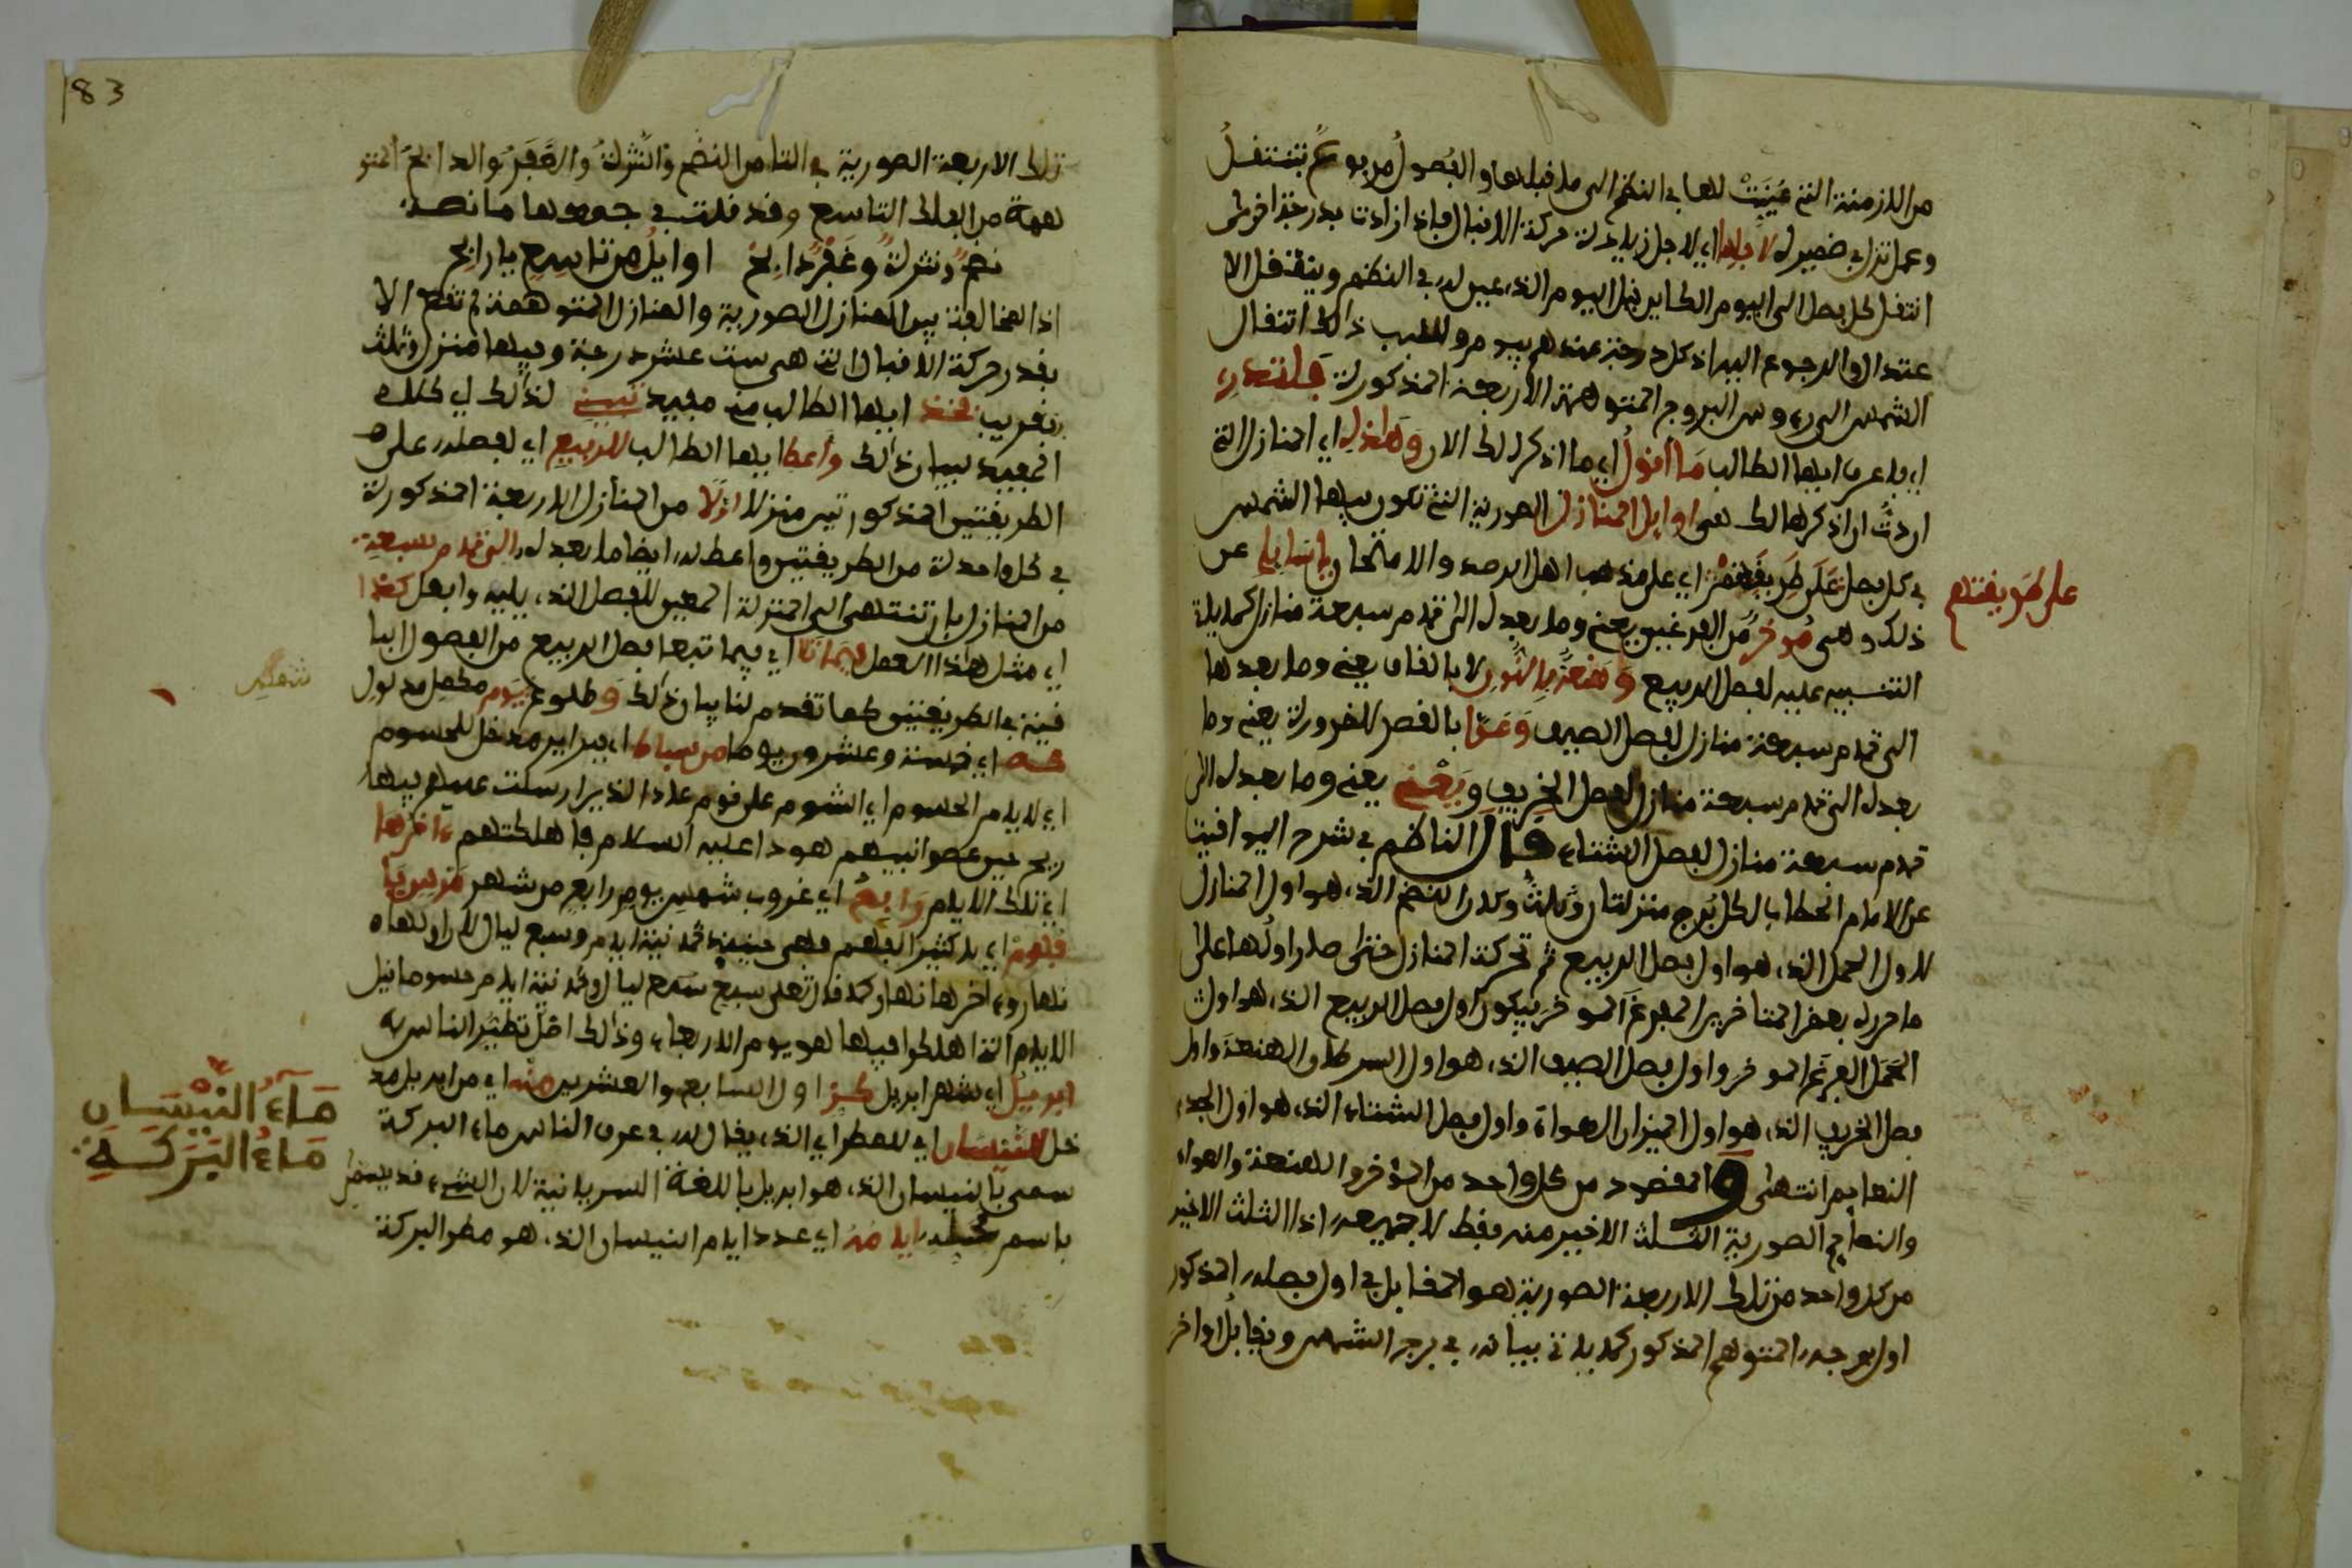 من الازمنة التي عينت لها في النظم الى ما قبلها والفصول مربوعة تنتقل
وعمل تنزل في ضمير له لاجلها اي لاجل زيادة حركة الاقبال فاذا زادت بدرجة اخرى
انتقل كل فصل الى اليوم الكاين قبل اليوم الذي عين له في النظم وينتقل الا
عتدال والرجوع اليه اذ كل درجة عندهم بيوم وللطبب ذالك انتقال
الشمس الى رءوس البروج المتوهمة الاربعة المذكورة فلتدر
اي فاعرف ايها الطالب ما اقول اي ما اذكر لك الان وهذه اي المنازل التي
اردت ان اذكرها لك هي اوايل المنازل الصورية التي تكون بها الشمس
في كل فصل على طريقتهم اي على مذهب اهل الرصد والامتحان يا سايلي عن
على طريقتهم
ذلك وهي موخر من الفرغين يعني وما بعده التي تمام سبعة منازل كما ياتي
التنبيه عليه لفصل الربيع وهنعة بالنون لا بالقاف يعني وما بعدها
الى تمام سبعة منازل لفصل الصيف وعوا بالقصر للضرورة يعني وما
بعده التي تمام سبعة منازل لفصل الخريف و يعني وما بعده الى
تمام سبعة منازل لفصل الشتاء قال الناظم في شرح اليواقيت
عن الامام الحطاب لكل برج منزلتان وثلث وكان النضح الذي هو اول المنازل
لاول الحمل الذي هو اول فصل الربيع ثم تحركت المنازل حتى صار اولها على
ما حرره بعض المتاخرين الفرغ الموخر فيكون اول فصل الربيع الذي هو اول
الحمل الفرغ الموخر واول فصل الصيف الذي هو اول السرطان الهنعة واول
فصل الخريف الذي هو اول الميزان العواة واول فصل الشتاء الذي هو اول الجدي
النعايم انتهى والمقصود من كل واحد من الموخر والهنعة والعواء
والنعايم الصورية الثلث الاخير منه فقط لا جميعه اذ الثلث الاخير
من كل واحد من تلك الاربعة الصورية هو المقابل في اول فصله المذكور
اول برجه المتوهم المذكور كما ياتي بيانه في برج الشمس ويقابل اواخر
83
تلك الاربعة الصورية في الثامن النضح والنثرة والغفر والذابح المتو
همة من الفلك التاسع وقد قلت في جميعها ما نصه
نضح ونثرة وغفر ذابح اوايل من تاسع يا رابح
اذ المخالفة بين المنازل الصورية والمنازل المتوهمة لم تقع الا
بقدر حركة الاقبال التي هي ست عشر درجة وفيها منزل وثلث
بتقريب فخذ ايها الطالب من مفيد تبين لذالك اي كلام
المفيد ببيان ذالك واعط ايها الطالب للربيع اي لفصله على
الطريقتين المذكورتين منزلا اولا من المنازل الاربعة المذكورة
في كل واحدة من الطريقتين واعط له ايضا ما بعد له الى تمام سبعة
من المنازل بان تنتهي الى المنزلة المعين للفصل الذي يليه وافعل كهذا
اي مثل هذا العمل فيما تلا اي فيما تبعا فصل الربيع من الفصول البا
قية في الطريقتين كما تقدم لنا بيان ذلك وطلوع يوم مكمل مدلول
كه اي خمسة وعشرون يوما من سباط اي فبراير مدخل للحسوم
اي لايام الحسوم اي الشوم على قوم عاد الذين ارسلت عليهم فيها
ريح حين عصوا نبيهم هودا عليه السلام فاهلكتهم ءاخرها
اي تلك الايام رابع اي غروب شمس يوم رابع من شهر مرس يا
فهوم اي يا كثير الفهم فهي حينئذ ثمانية ايام وسبع ليال لان اولها
نهار وءاخرها نهار كما قال تعلى سبع ليال وثمانية ايام حسوما قيل
الايام التي اهلكوا فيها هو يوم الاربعاء وذالك اصل تطير الناس به
ابريل اي شهر ابريل كز اول السابع والعشرين منه اي من ابريل مد
خل للنيسان اي للمطر اي الذي يقال له في عرف الناس ماء البركة
سمي بالنيسان الذي هو ابريل باللغة السريانية لان الشيء قد يسمى
ماء النيسان
ماء البركة
باسم محله ايامه اي عدد ايام النيسان الذي هو مطر البركة